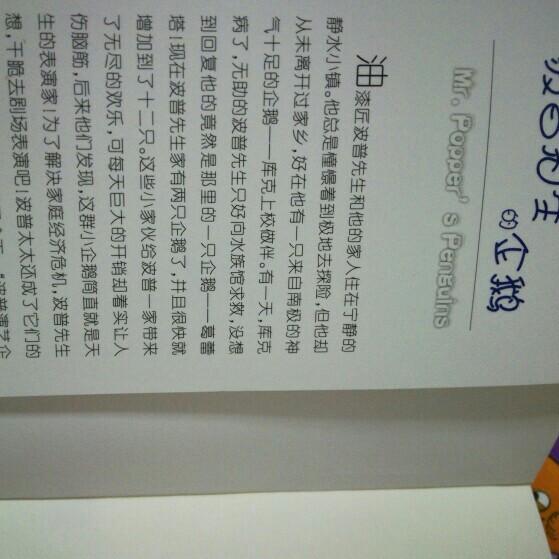 波普先生
的企鹅
Mr. Popper's Penguins
油漆匠波普先生和他的家人住在宁静的
静水小镇。他总是憧憬着到极地去探险，但他却
从未离开过家乡，好在他有一只来自南极的神
气十足的企鹅——库克上校做伴。有一天，库克
病了，无助的波普先生只好向水族馆求救，没想
到回复他的竟然是那里的一只企鹅——葛蕾
塔！现在波普先生家有两只企鹅了，并且很快就
增加到了十二只。这些小家伙给波普一家带来
了无尽的欢乐，可每天巨大的开销却着实让人
伤脑筋，后来他们发现，这群小企鹅简直就是天
生的表演家！为了解决家庭经济危机，波普先生
想，干脆去剧场表演吧！波普太太还成了它们的